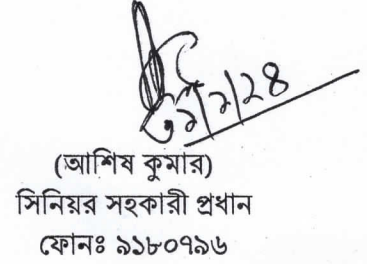 (আশিষ কুমার)
সিনিয়র সহকারী প্রধান
ফোনঃ ৯১৮০৭৯৬